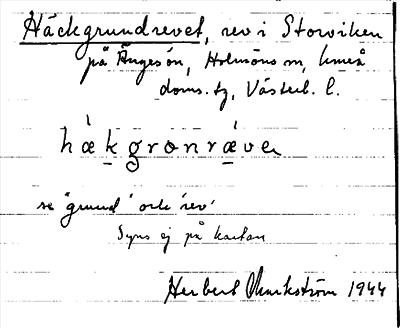 Häckgrundrevet, rev i Storviken
på Ängesön, Holmöns sn, Umeå
doms. tg, Västerb. l.
hækgronræve
se "grund" och "rev"
Syns ej på kartan
Herbert Markström 1944